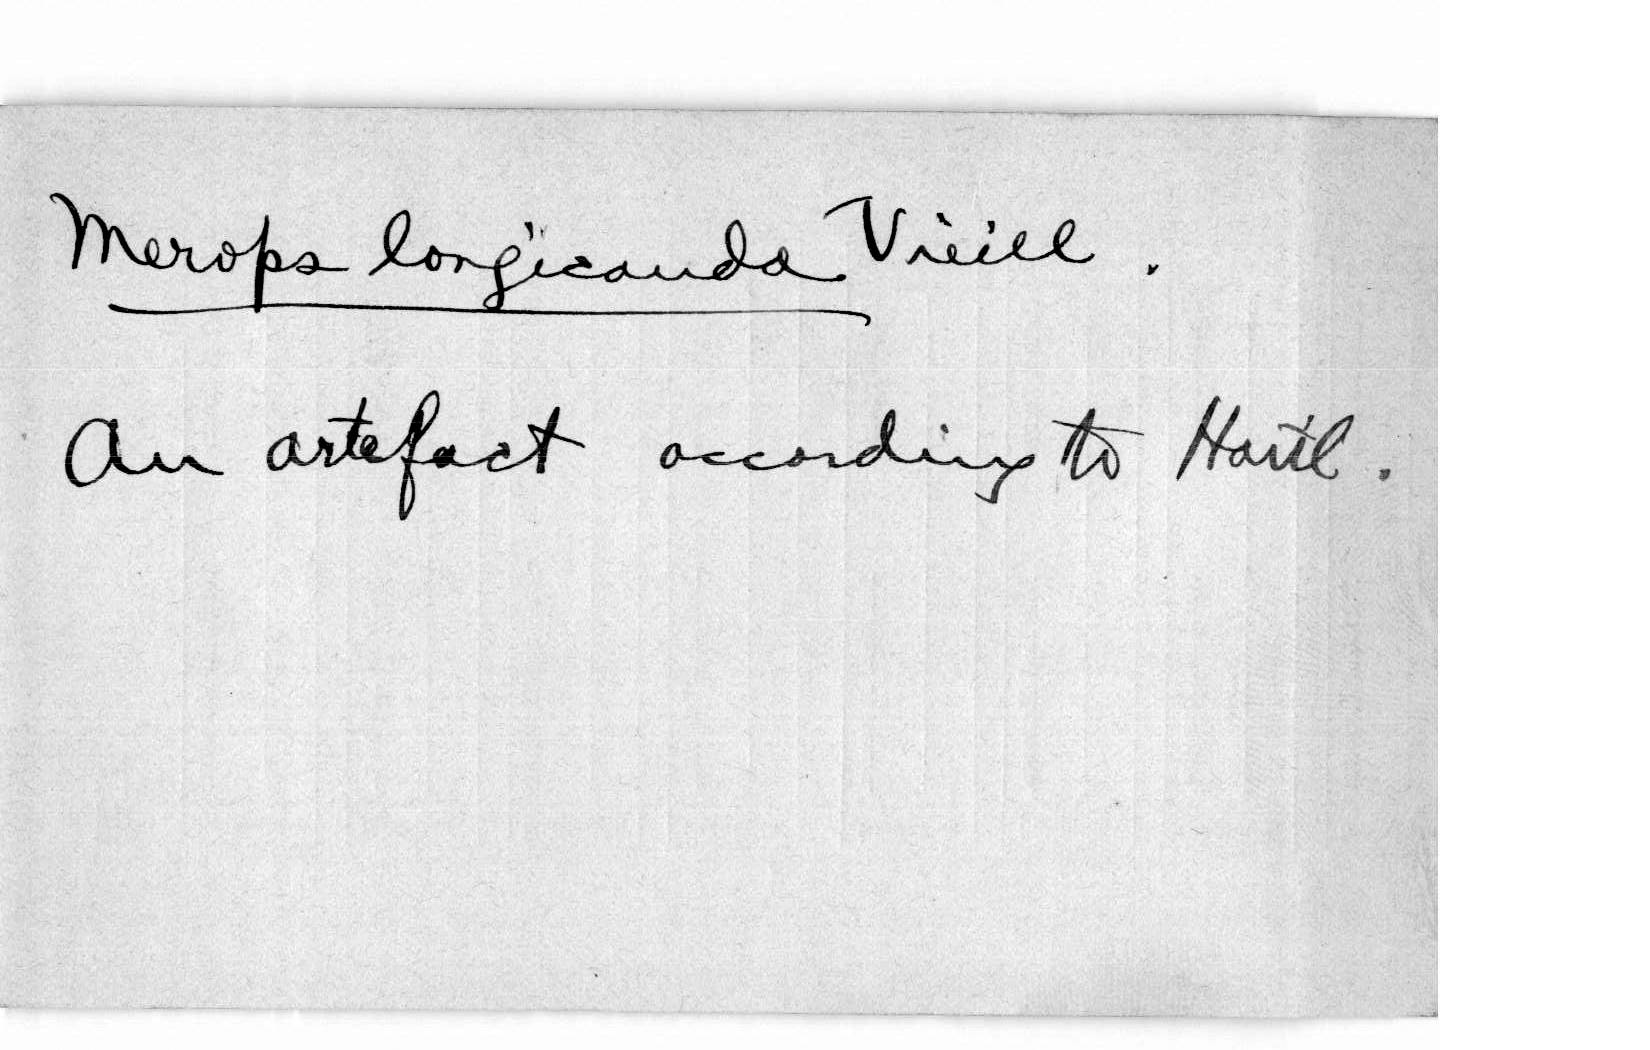 Merops longicauda Vieill.
An artefact according to Hartl.